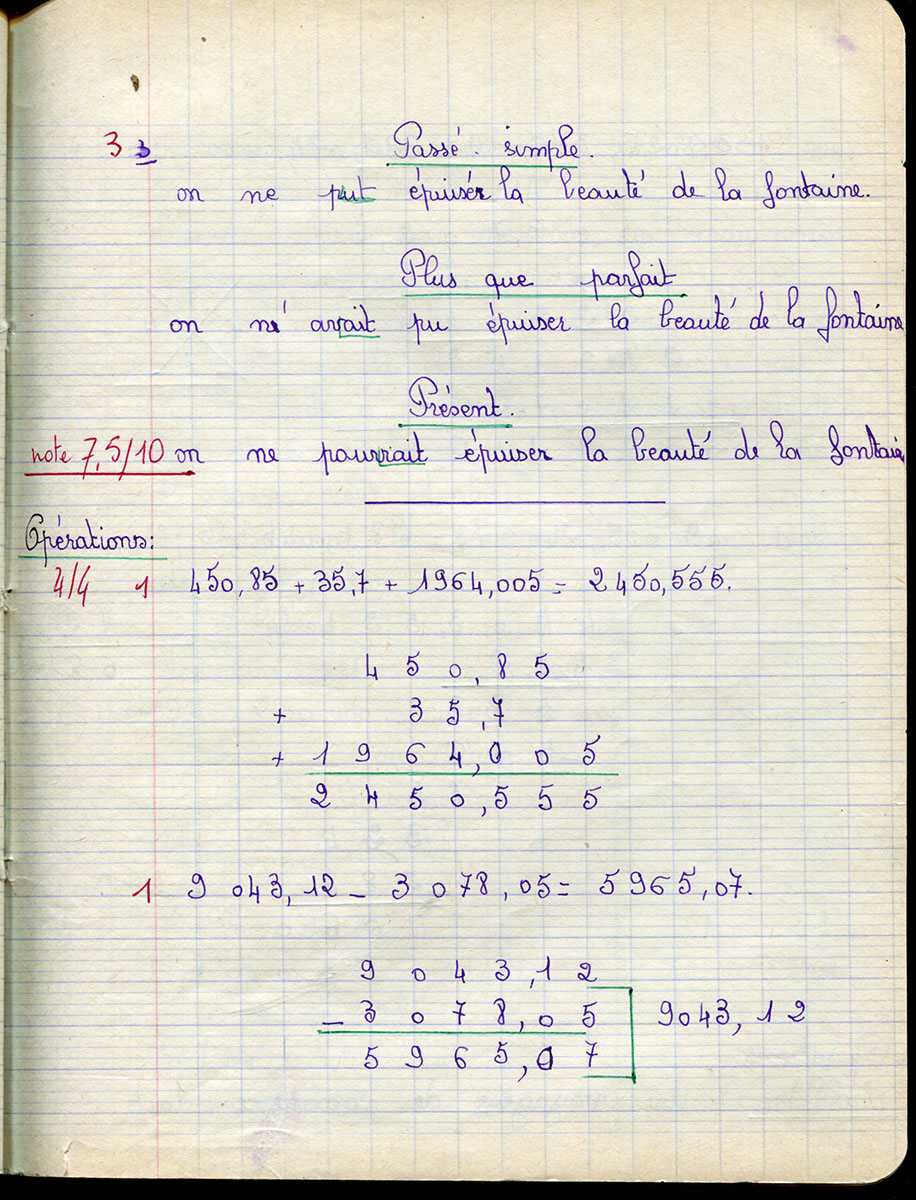 3 3 Passé simple.
on ne put épuiser la beauté de la fontaine.
Plus que parfait
on n'avait pu épuiser la beauté de la fontaine
Présent.
note 7,5/10 on ne pourrait épuiser la beauté de la fontain
Opérations:
4/4 1 450,85 + 35,7 + 1964,005 = 2450,555.
4 5 0,8 5
+ 3 5,7
+ 1 9 6 4,0 0 5
2 4 5 0,5 5 5
1 9 043,12 - 3 078,05 = 5965,07.
9 0 4 3,1 2
- 3 0 7 8,0 5 9043,12
5 9 6 5,0 7